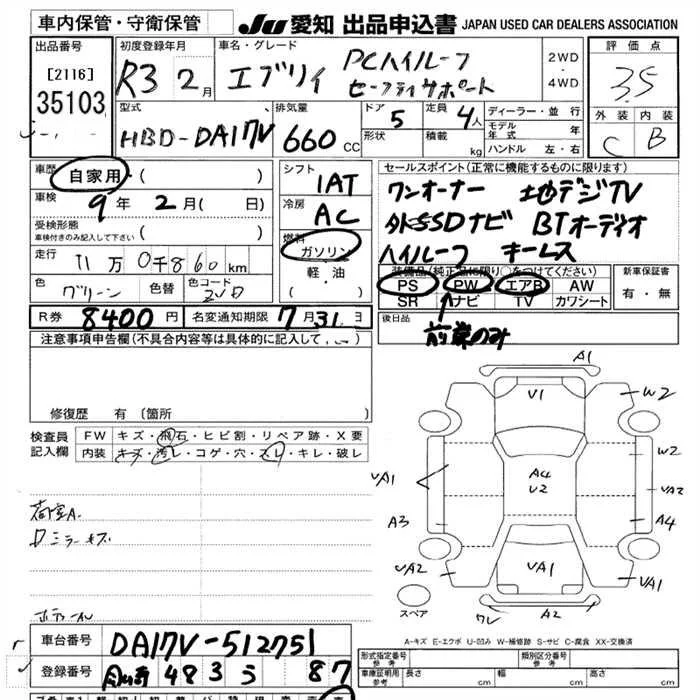 車内保管・守衛保管
JU 愛知 出品申込書 JAPAN USED CAR DEALERS ASSOCIATION
出品番号 [2116] 35103
初度登録年月 R3 2月
車名・グレード エブリィ PCハイルーフ セーフティサポート
2WD・4WD
評価点 3.5
外装 C 内装 B
型式 HBD-DA17V
排気量 660 CC
ドア 5 定員 4人
形状 積載 kg
ディーラー・並行
モデル年式 年
ハンドル 左・右
車歴 自家用・( )
車検 9年 2月( 日)
受検形態 車検付きのみ記入して下さい ( )
走行 11万0千860km
色 グリーン 色替 色コード
シフト 1AT
冷房 AC
燃料 ガソリン・軽油 ( )
セールスポイント(正常に機能するものに限ります)
ワンオーナー 地デジTV
外SSDナビ BTオーディオ
ハイルーフ キーレス
装備品(純正品に限り○をつけてください)
PS PW エアB AW
SR ナビ TV カワシート
新車保証書 有・無
R券 8400円 名変通知期限 7月31日
後日品
前席のみ
注意事項申告欄(不具合内容等は具体的に記入して
修復歴 有 (箇所 )
検査員記入欄
FW キズ・飛石・ヒビ割・リペア跡・X要
内装 キズ・汚レ・コゲ・穴・スレ・キレ・破レ
荷室A
Dミラーキズ
A1
V1
W2
W2
A4
U2
UA1
UA2
A3
A4
UA2
UA1
UA1
A2
ワレ
スペア
A-キズ E-エクボ U-凹み W-補修跡 S-サビ C-腐食 XX-交換済
車台番号 DA17V-512751
登録番号 483 う 87
形式指定番号 参考 類別区分番号 参考
車庫証明用 参考 長さ cm 幅 cm 高さ cm